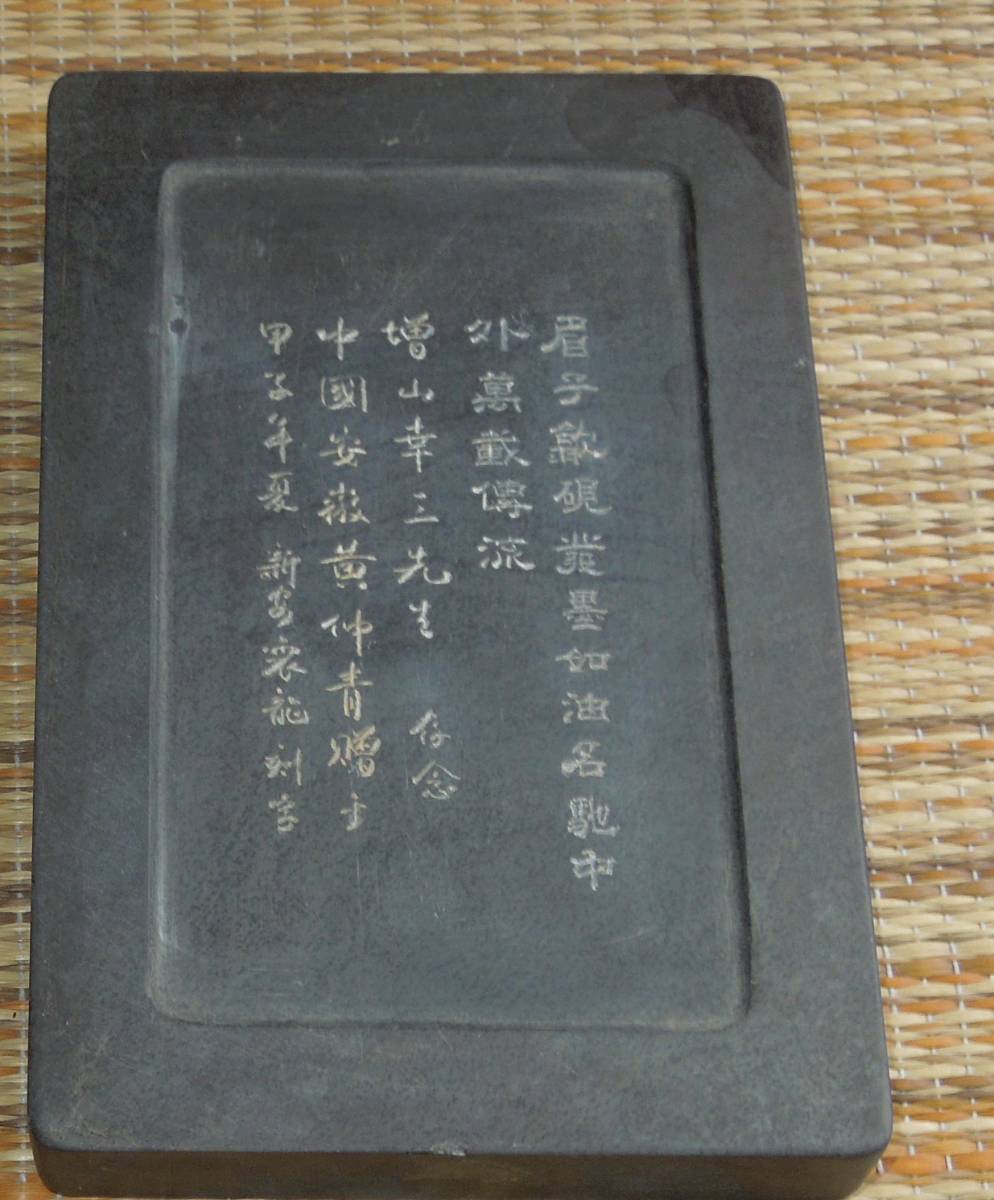 眉子歙硯發墨如油名馳中
外萬載傳流
增山幸三先生 存念
中國安徽黃仲青贈
甲子年夏 新安 刻字